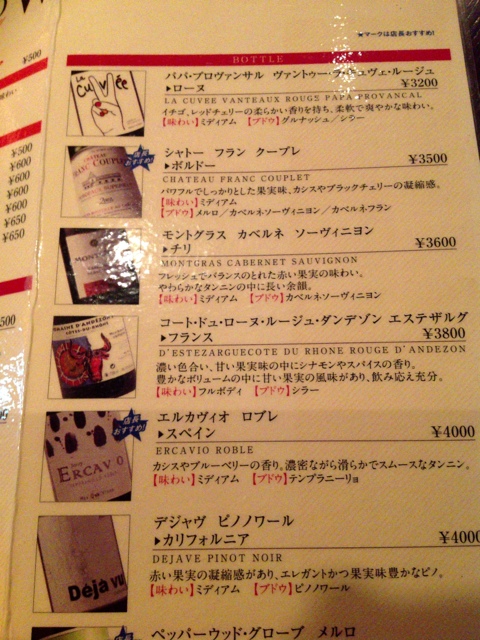 ★マークは店長おすすめ!
BOTTLE
パパ・プロヴァンサル ヴァントゥー・ラ・キュヴェ・ルージュ
▶ローヌ ¥3200
LA CUVEE VANTEAUX ROUGE PAPA PROVANCAL
イチゴ、レッドチェリーの柔らかい香りを持ち、柔軟で爽やかな味わい。
【味わい】ミディアム 【ブドウ】グルナッシュ/シラー
シャトー フラン クープレ
▶ボルドー ¥3500
CHATEAU FRANC COUPLET
パワフルでしっかりとした果実味、カシスやブラックチェリーの凝縮感。
【味わい】ミディアム
【ブドウ】メルロ/カベルネソーヴィニヨン/カベルネフラン
モントグラス カベルネ ソーヴィニヨン
▶チリ ¥3600
MONTGRAS CABERNET SAUVIGNON
フレッシュでバランスのとれた赤い果実の味わい。
やわらかなタンニンの中に長い余韻。
【味わい】ミディアム 【ブドウ】カベルネソーヴィニヨン
コート・ドュ・ローヌ・ルージュ・ダンデゾン エステザルグ
▶フランス ¥3800
D'ESTEZARGUECOTE DU RHONE ROUGE D'ANDEZON
濃い色合い、甘い果実味の中にシナモンやスパイスの香り。
豊かなボリュームの中に甘い果実の風味があり、飲み応え充分。
【味わい】フルボディ 【ブドウ】シラー
エルカヴィオ ロブレ
▶スペイン ¥4000
ERCAVIO ROBLE
カシスやブルーベリーの香り。濃密ながら滑らかでスムースなタンニン。
【味わい】ミディアム 【ブドウ】テンプラニーリョ
デジャヴ ピノノワール
▶カリフォルニア ¥4000
DEJAVE PINOT NOIR
赤い果実の凝縮感があり、エレガントかつ果実味豊かなピノ。
【味わい】ミディアム 【ブドウ】ピノノワール
ペッパーウッド・グローブ メルロ
La
cuvée
店長
おすすめ!
DOMAINE D'ANDEZON
CÔTES-DU-RHÔNE
店長
おすすめ!
ERCAVIO
Déjà vu
¥500
¥500
¥600
¥600
¥600
¥650
¥650